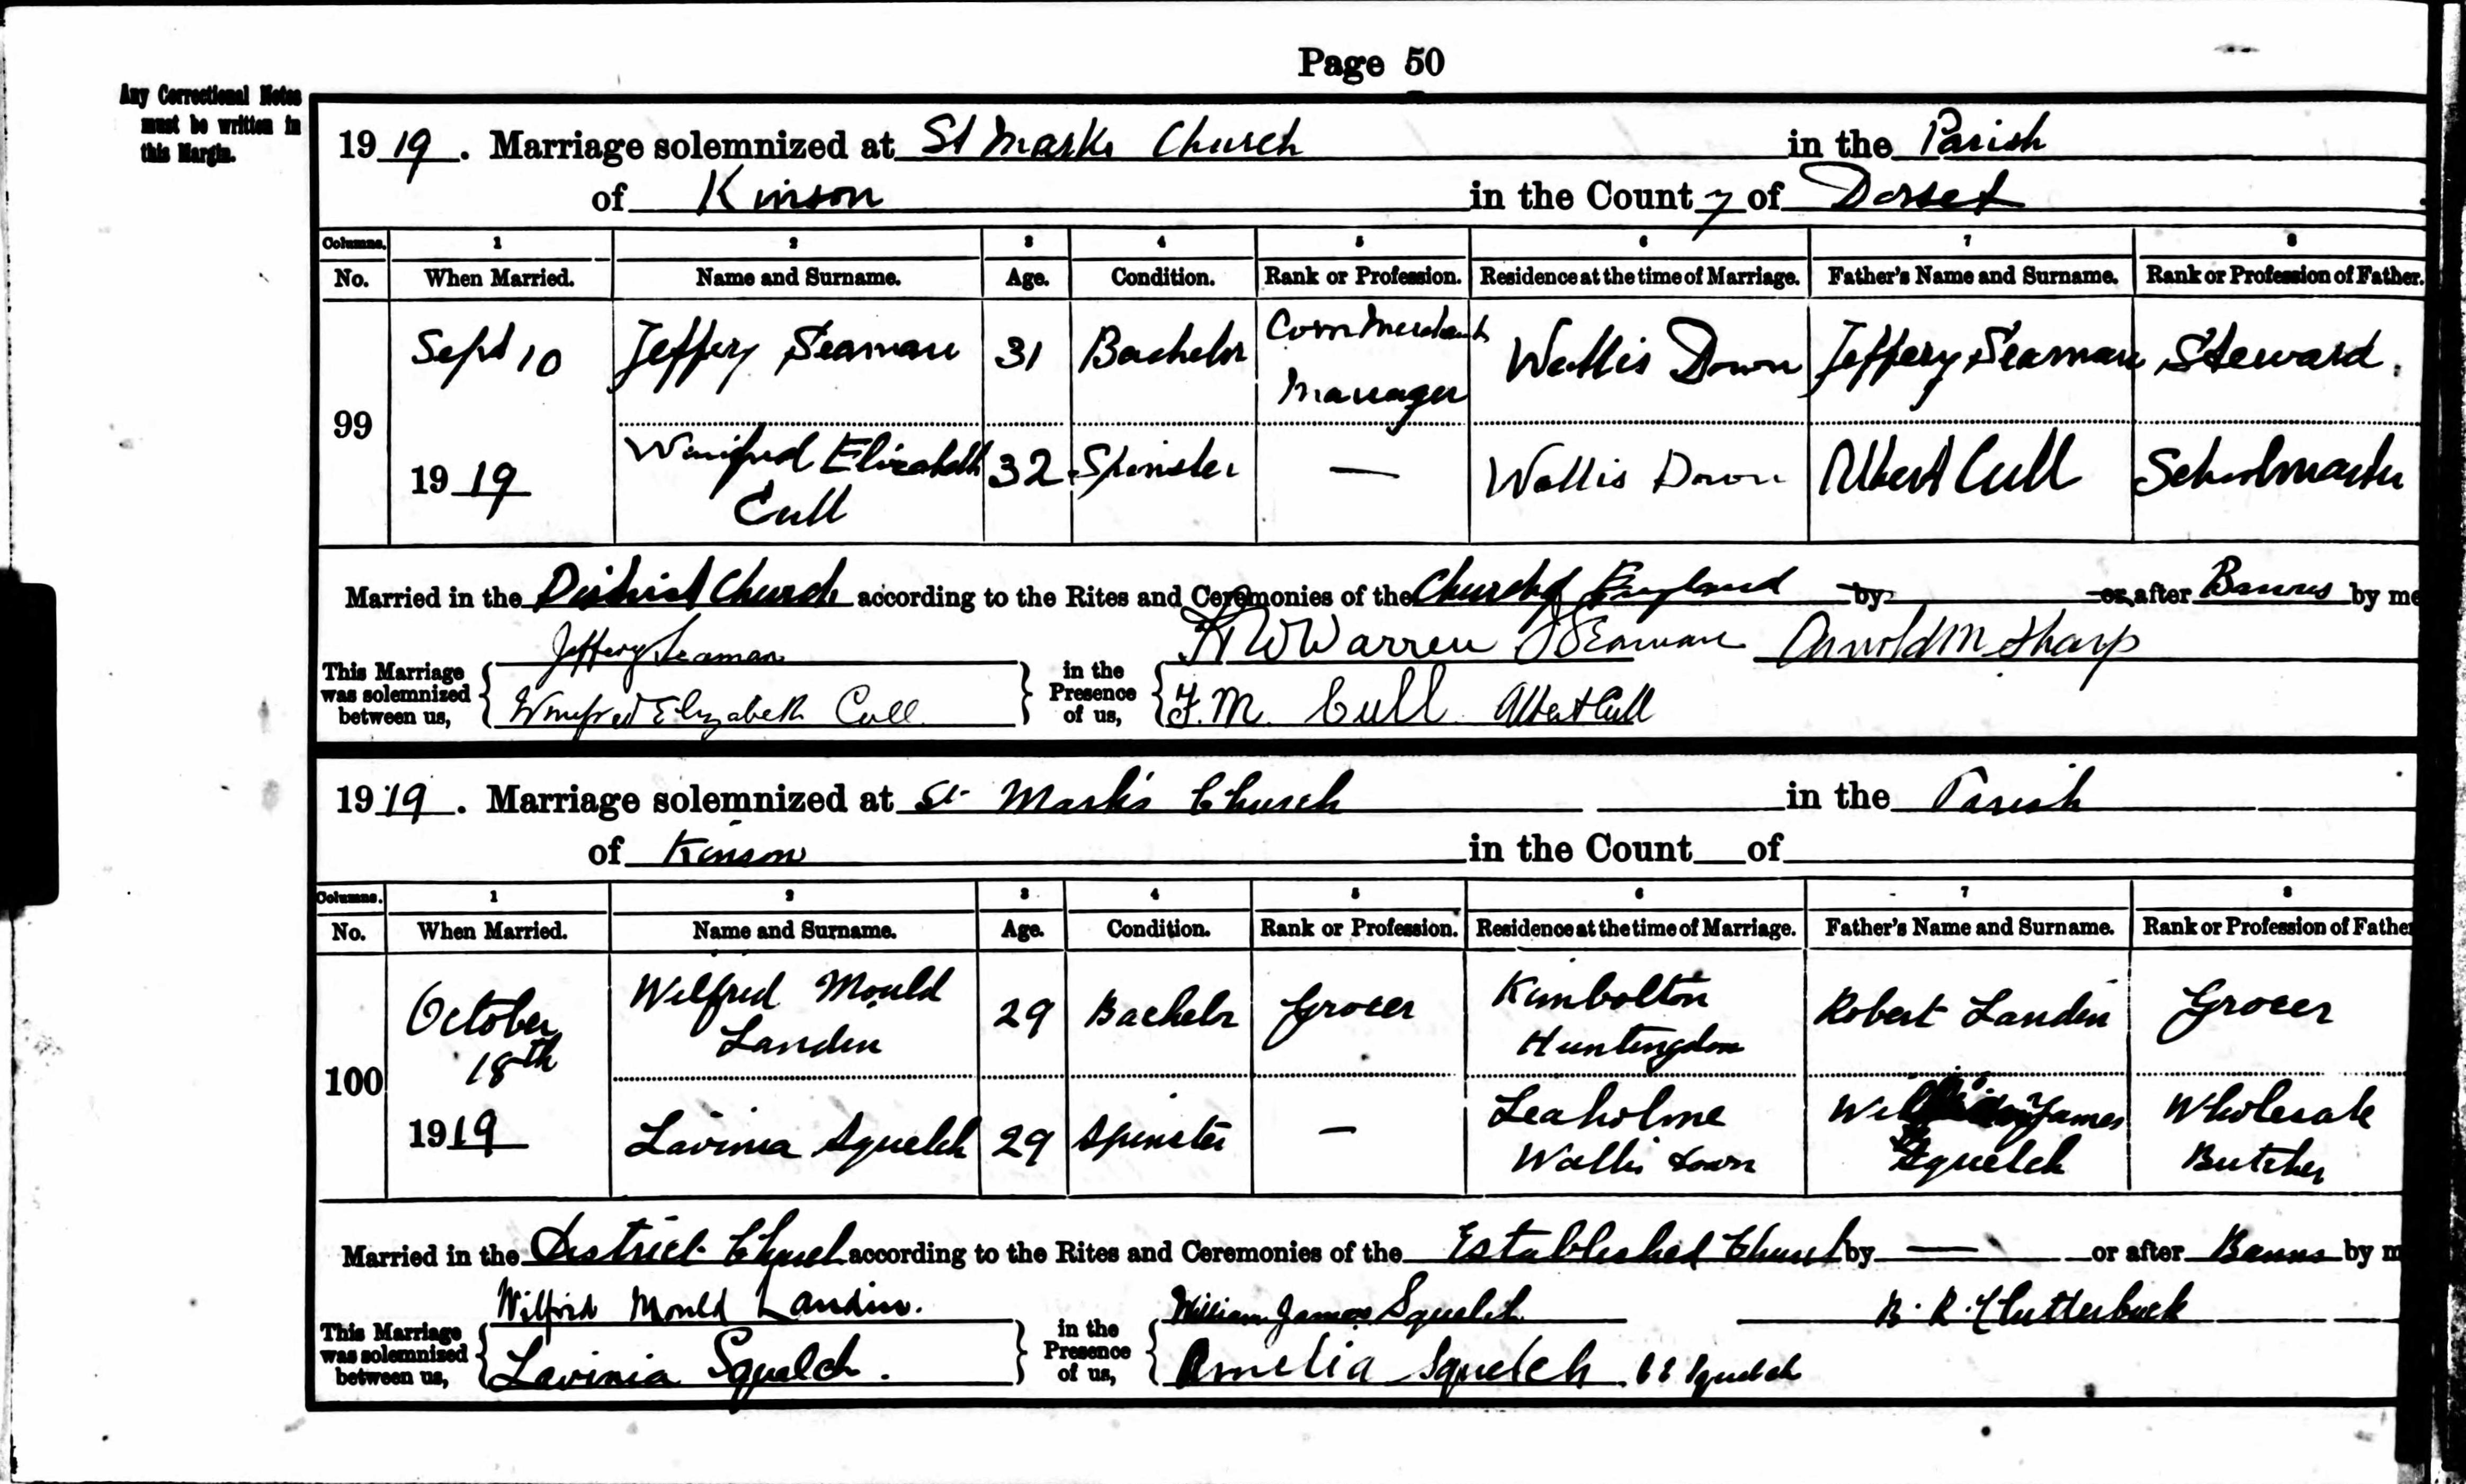 Page 50
Any Correctional Notes
must be written in
this Margin.
1919. Marriage solemnized at St Marks Church in the Parish
of Kinson in the County of Dorset
Columns. 1 2 3 4 5 6 7 8
No. When Married. Name and Surname. Age. Condition. Rank or Profession. Residence at the time of Marriage. Father's Name and Surname. Rank or Profession of Father.
99 Sept 10 Jeffery Seaman 31 Bachelor Corn Merchants Manager Wallis Down Jeffery Seaman Steward
1919 Winifred Elizabeth Cull 32 Spinster — Wallis Down Albert Cull Schoolmaster
Married in the District Church according to the Rites and Ceremonies of the Church of England by or after Banns by me
Jeffery Seaman W Warren J Seaman Arnold M Sharp
This Marriage was solemnized between us, in the Presence of us,
Winifred Elizabeth Cull F. M. Cull Albert Cull
1919. Marriage solemnized at St Mark's Church in the Parish
of Kinson in the Count of
Columns. 1 2 3 4 5 6 7 8
No. When Married. Name and Surname. Age. Condition. Rank or Profession. Residence at the time of Marriage. Father's Name and Surname. Rank or Profession of Father
100 October 18th Wilfred Mould Landin 29 Bachelor Grocer Kimbolton Huntingdon Robert Landin Grocer
1919 Lavinia Squelch 29 Spinster — Leaholme Wallis Down James Squelch Wholesale Butcher
Married in the District Church according to the Rites and Ceremonies of the Established Church by — or after Banns by m
Wilfrid Mould Landin. William James Squelch R. R. Clutterbuck
This Marriage was solemnized between us, in the Presence of us,
Lavinia Squelch. Amelia Squelch Squelch